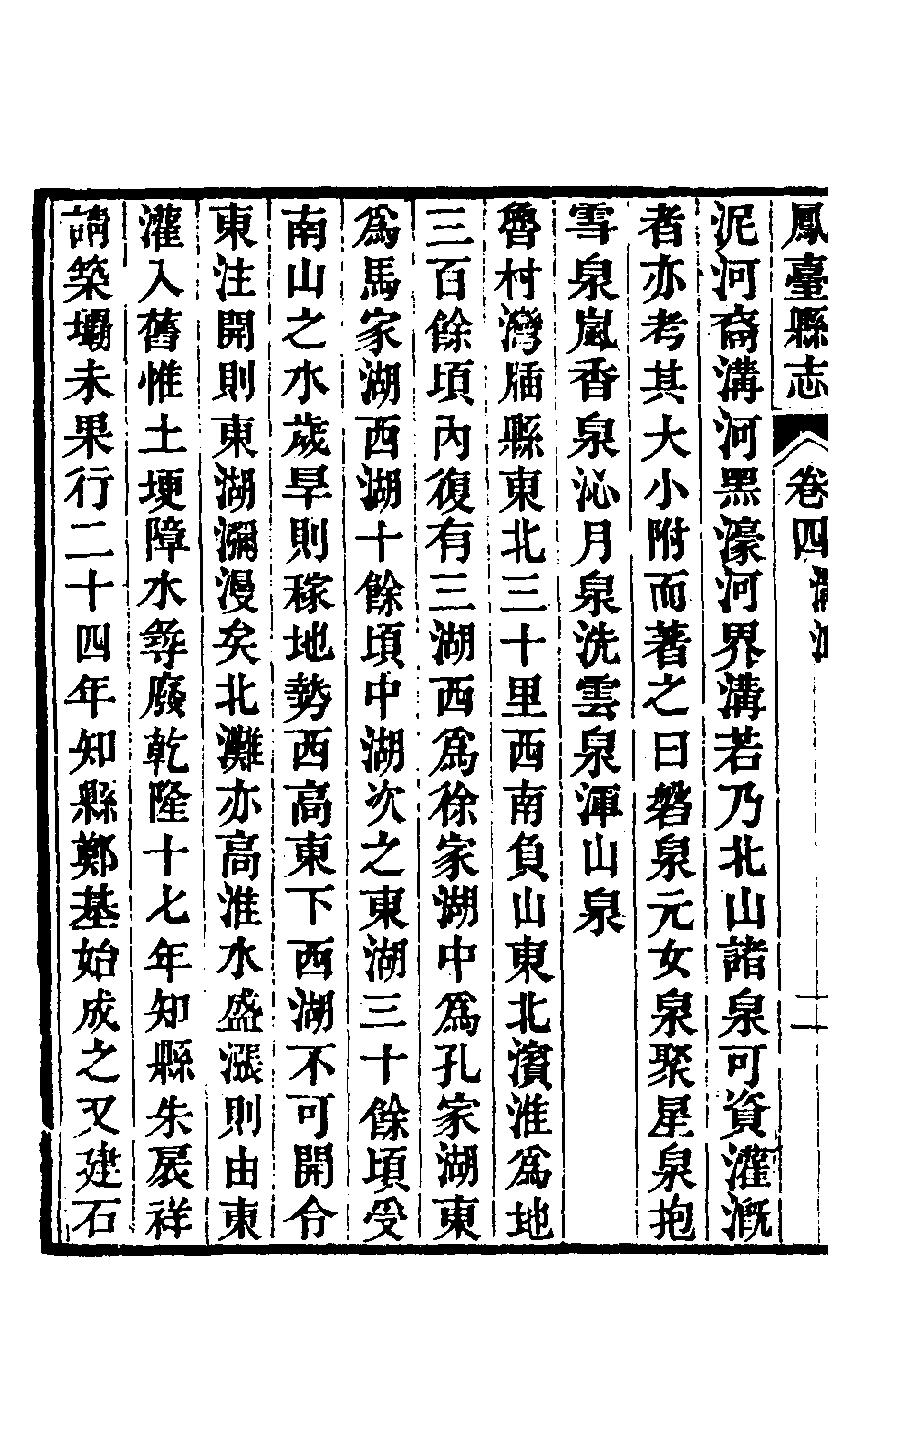 鳳臺縣志 卷四 溝洫 二
泥河裔溝河黑濠河界溝若乃北山諸泉可資灌溉
者亦考其大小附而著之曰磐泉元女泉聚星泉抱
雪泉嵐香泉沁月泉洗雲泉渾山泉
魯村灣湖縣東北三十里西南負山東北濱淮爲地
三百餘頃內復有三湖西爲徐家湖中爲孔家湖東
爲馬家湖西湖十餘頃中湖次之東湖三十餘頃受
南山之水歲旱則稼地勢西高東下西湖不可開令
東注開則東湖瀰漫矣北灘亦高淮水盛漲則由東
灌入舊惟土埂障水尋廢乾隆十七年知縣朱扆祥
請築壩未果行二十四年知縣鄭基始成之又建石